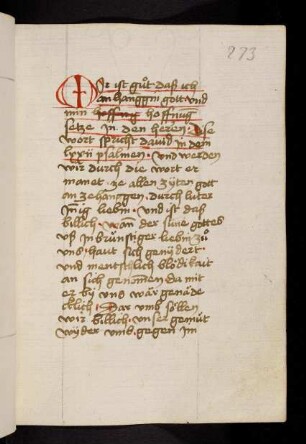 273
Mir ist guͦt daß ich
an hanggin gott vnd
min hoffnug hoffnug
setze in den heren. Dise
wort spricht dauid in dem
lxxij psalmen. vnd werden
wir durch die wort er
manet. ze allen zÿten gott
an zehanggen. durch luter
jn̄ig liebin. vnd ist daß
billich. wan̄ der sune gottes
vß in brünstiger liebin zuͦ
vns. haut sich genÿdert.
vnd mentschlich blödikait
an sich genāmen da mit
er bÿ vns wär genäde
klich. Dar vmb söllen
wir billich. vnser gemüt
wÿder vmb. gegen im